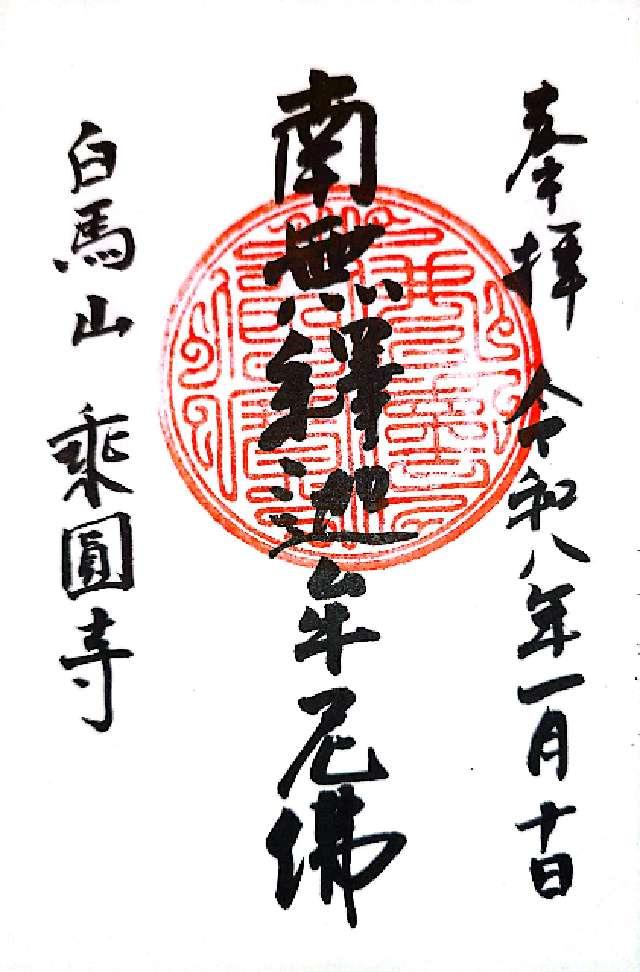 奉拝 令和八年一月十日
南無釋迦牟尼佛
白馬山 乘圓寺